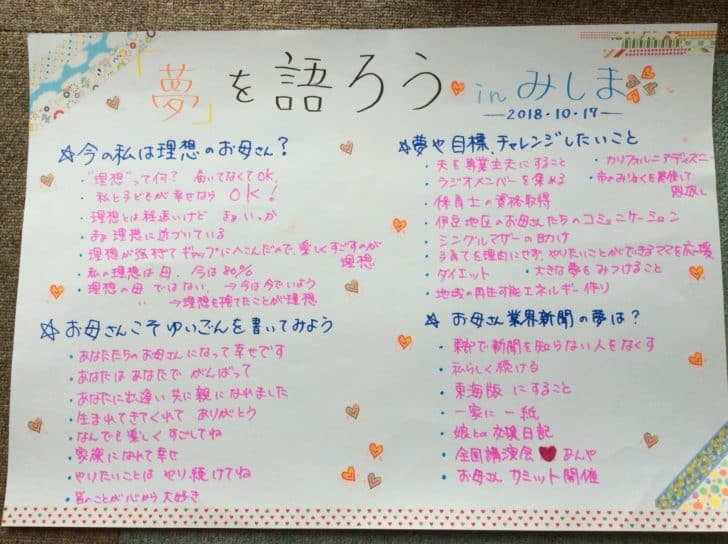 「夢」を語ろう in みしま
2018.10.17
☆今の私は理想のお母さん？
・"理想"って何？ 届いてなくてOK。
・私と子どもが幸せなら OK！
・理想とは程遠いけど まぁいっか
・まぁ理想に近づいている
・理想が強すぎてギャップにへこんだので、楽しくすごすのが理想
・私の理想は母、今は80%
・理想の母ではない →今は今でいいよう
→理想を捨てたことが理想
☆お母さんこそゆいごんを書いてみよう
・あなたたちのお母さんになって幸せです
・あなたはあなたで がんばって
・あなたに出逢い 共に親になれました
・生まれてきてくれて ありがとう
・なんでも楽しくすごしてね
・家族になれて幸せ
・やりたいことは やり続けてね
・皆のことが心から大好き
☆夢や目標、チャレンジしたいこと
・夫を専業主夫にすること ・カリフォルニアディズニー
・ラジオメンバーを集める ・市の
・保育士の資格取得
・伊豆地区のお母さんたちのコミュニケーション
・シングルマザーの助け
・子育てを理由にせず、やりたいことができるママを応援
・ダイエット ・大きな夢をみつけること
・地域の再生可能エネルギー作り
☆お母さん業界新聞の夢は？
・東部で新聞を知らない人をなくす
・私らしく続ける
・東海版にすること
・一家に一紙
・娘との交換日記
・全国講演会♥あんや
・お母さんサミット開催